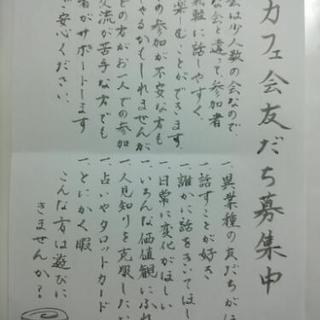 カフェ会友だち募集中
会は少人数の会なので
な会と違って、参加者
気軽に話しやすく、
楽しむことができます。
の参加が不安な方も
ゃるかもしれませんが
どの方がお一人での参加
交流が苦手な方でも
者がサポートします
ご安心ください。
一、異業種の友だちがほ
一、話すことが好き
一、誰かに話をきいてほし
一、日常に変化がほしい
一、いろんな価値観にふれ
一、人見知りを克服したい
一、占いやタロットカード
一、とにかく暇
こんな方は遊びに
きませんか?